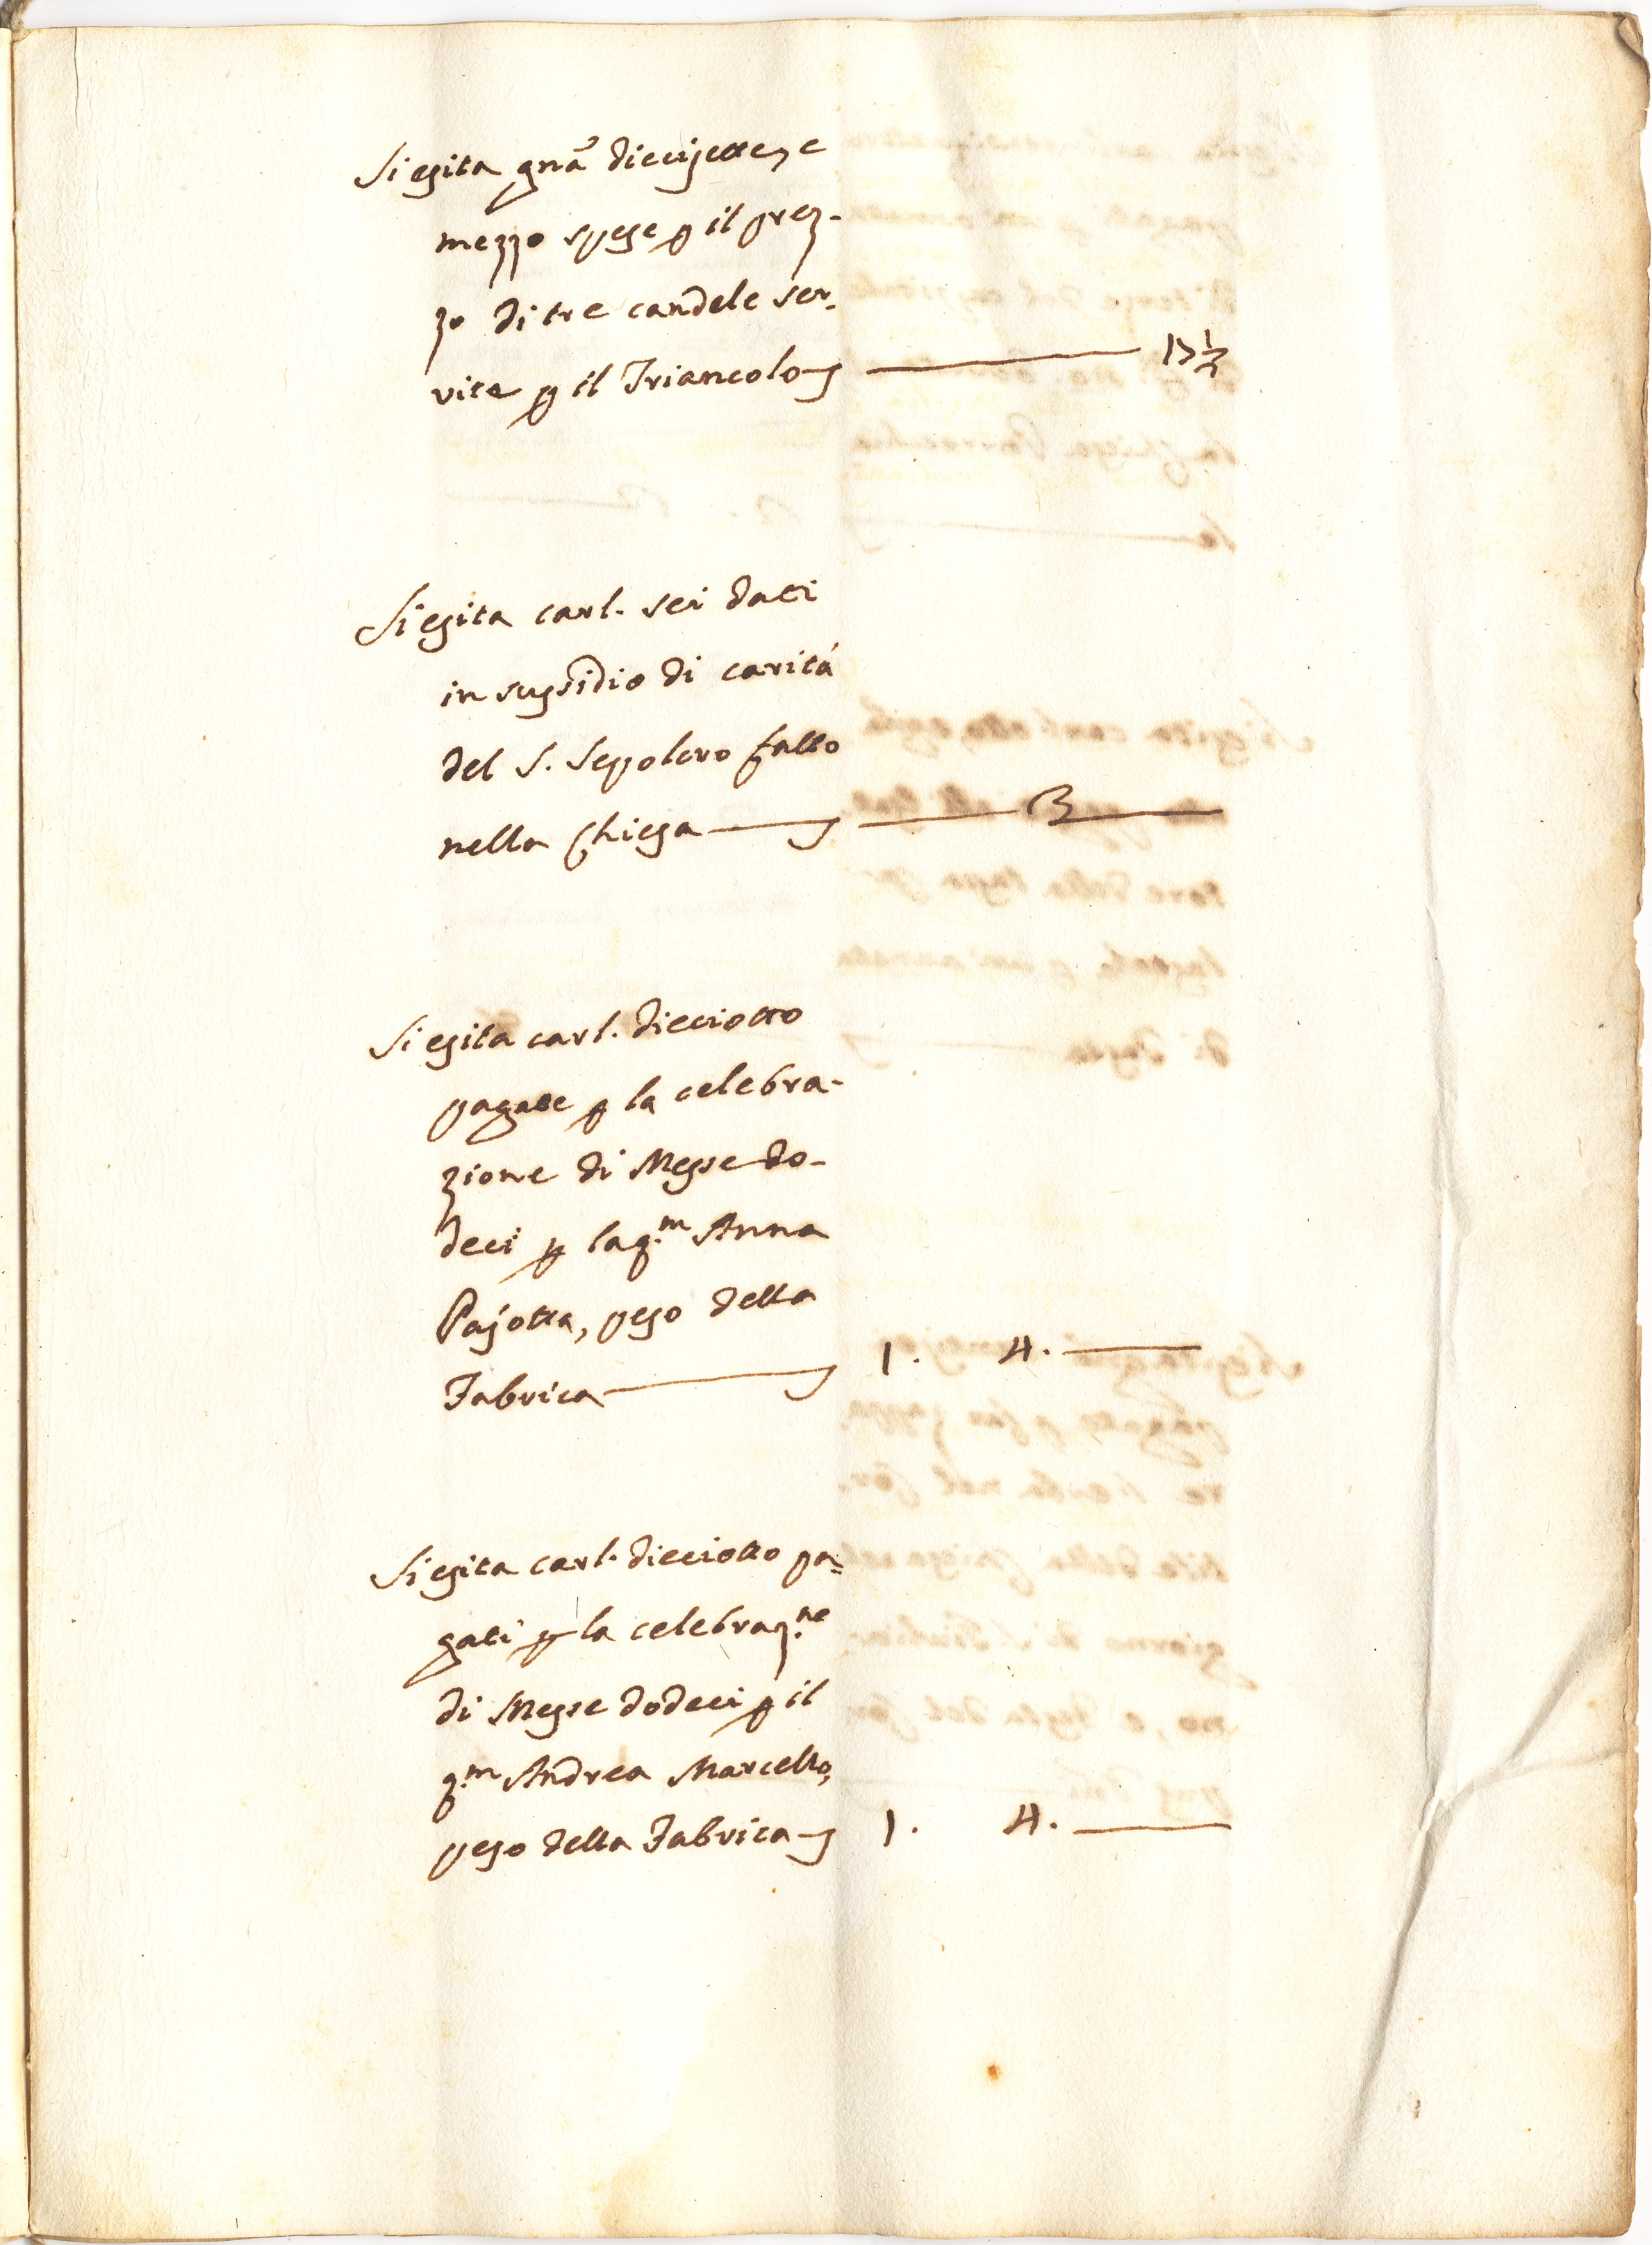 Si esita gnā diecisette, e
mezzo spese p il prez-
zo di tre candele ser-
vite p il Triancolo — 17½
Si esita carl. sei dati
in sussidio di carità
del S. Sepolcro fatto
nella Chiesa — 3 —
Si esita carl. dieciotto
pagate p la celebra-
zione di Messe do-
deci p la q.m Anna
Pajotta, peso della
Fabrica — 1. 4. —
Si esita carl. dieciotto pa-
gati p la celebraz.ne
di Messe dodeci p il
q.m Andrea Marcello,
peso della Fabrica — 1. 4. —